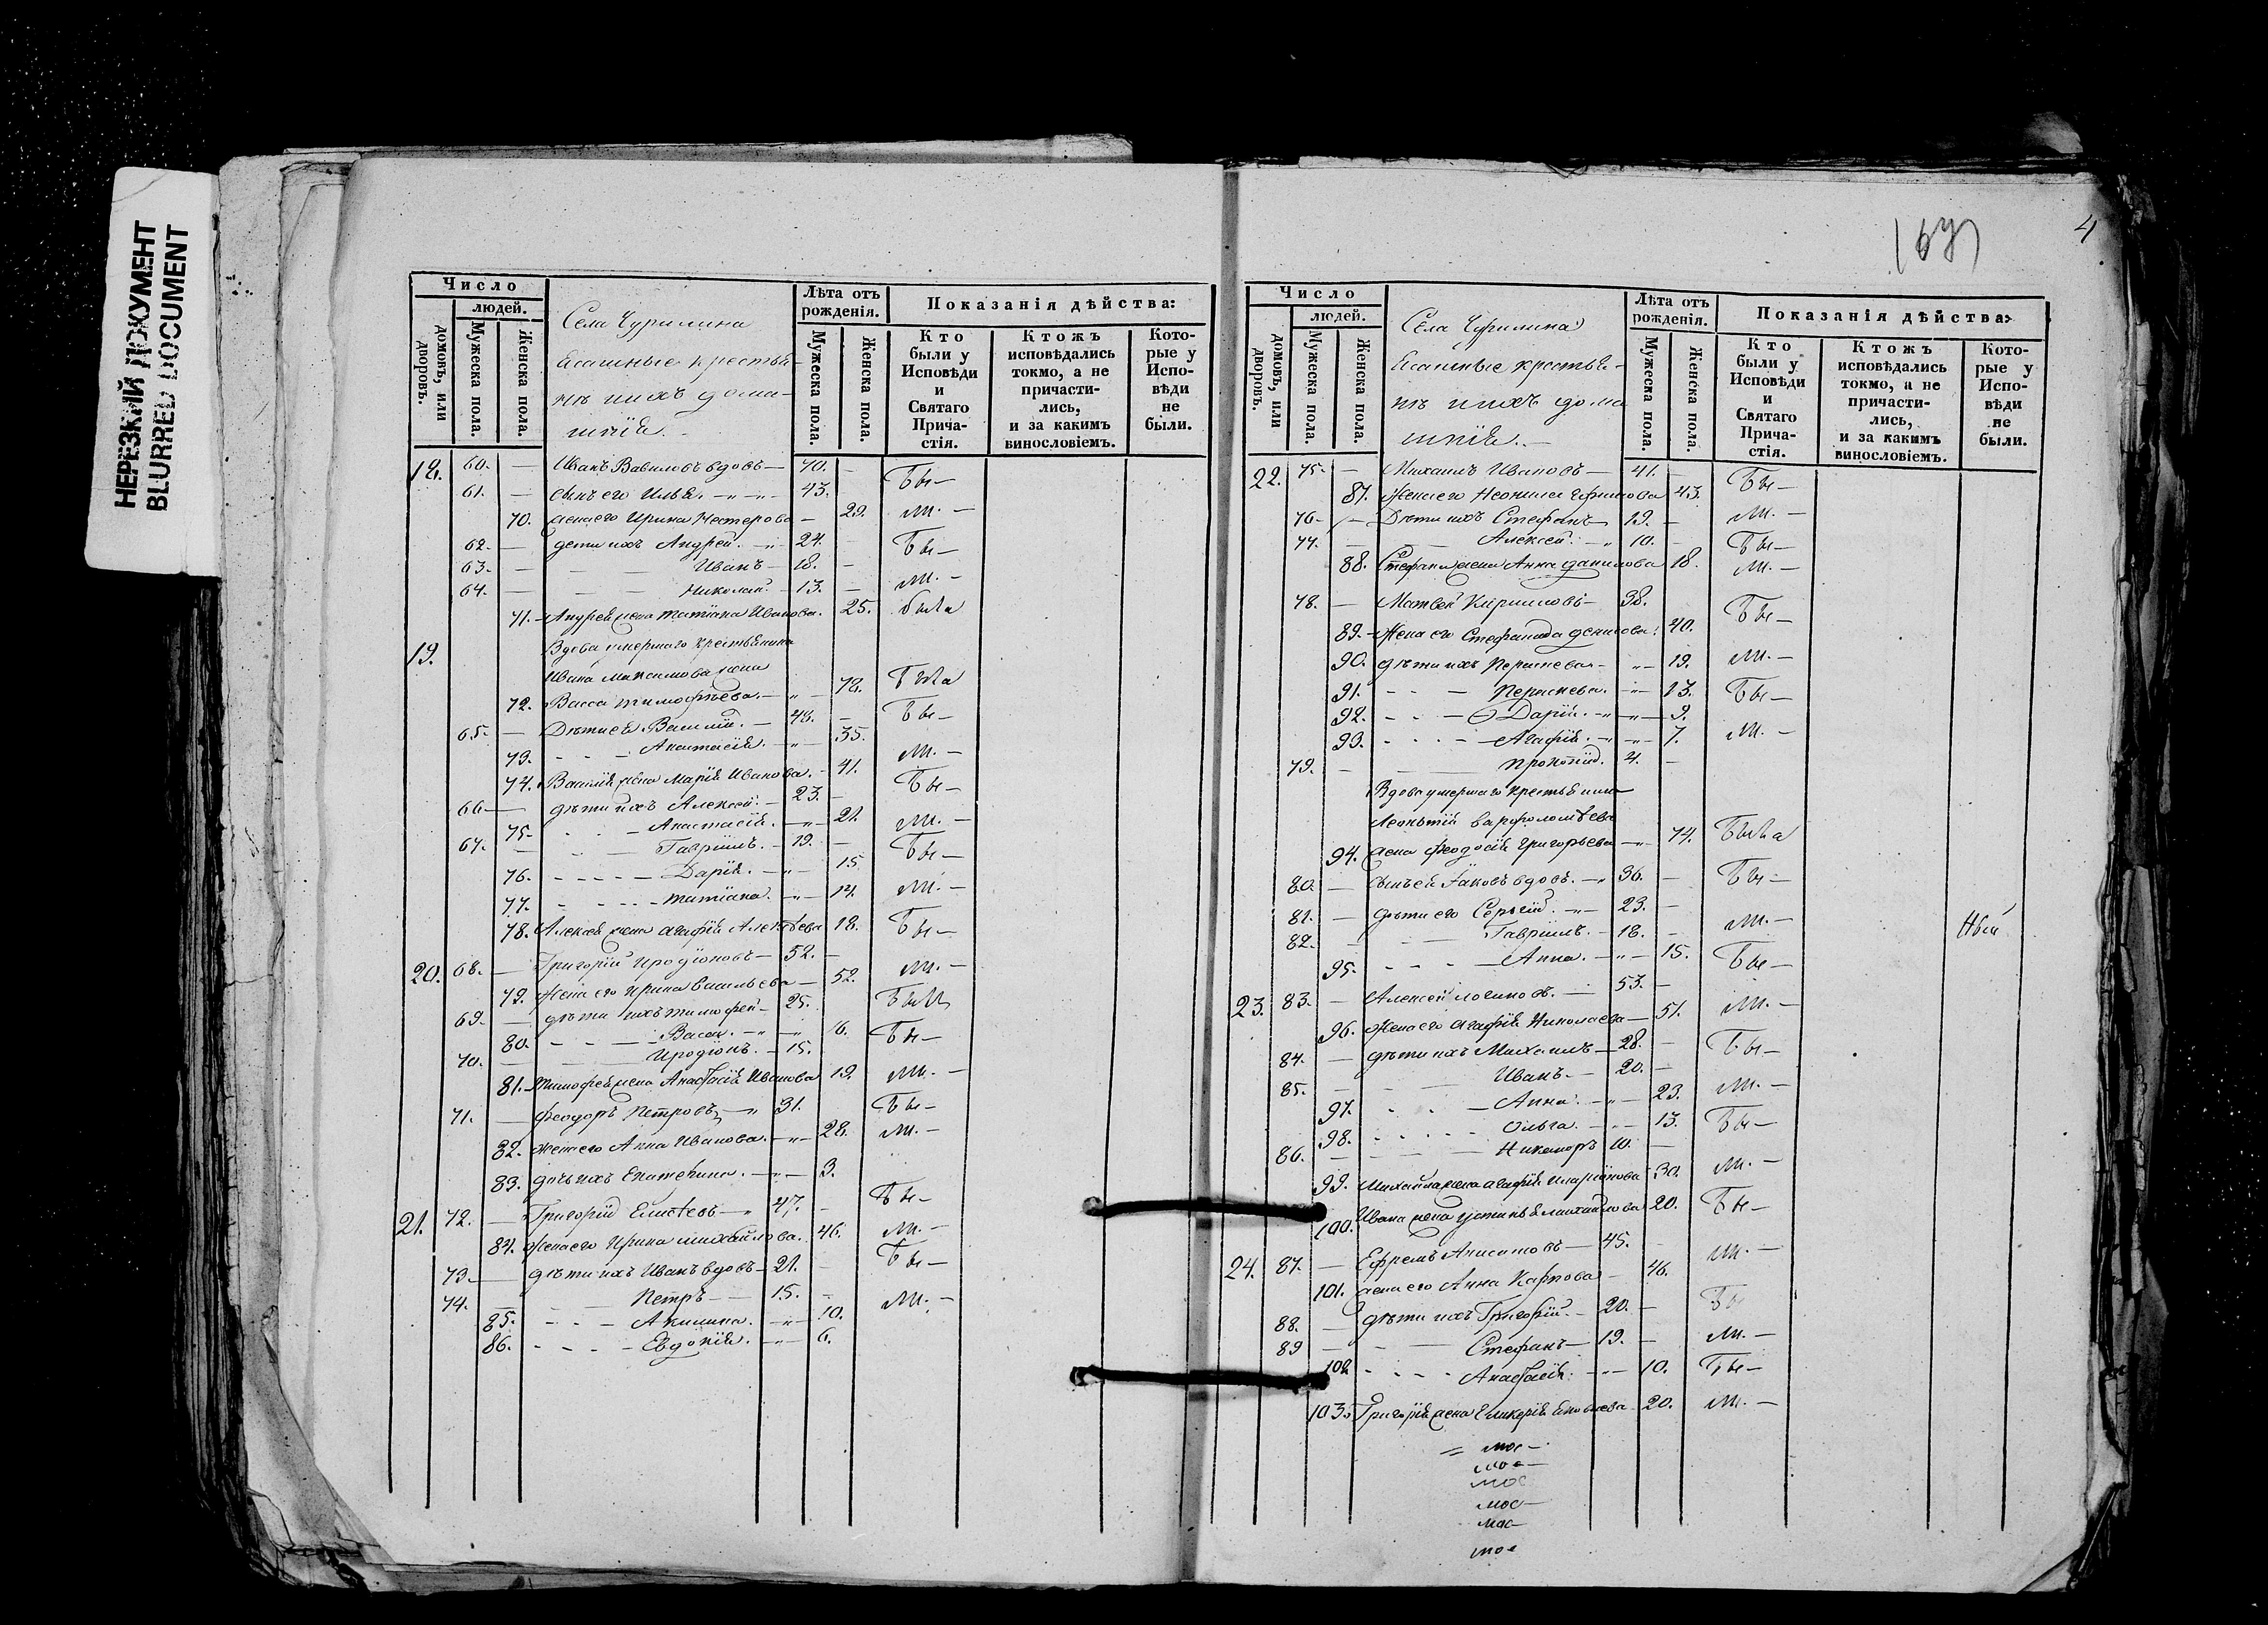 НЕРЕЗКИЙ ДОКУМЕНТ
BLURRED DOCUMENT
Число
людей.
домовъ, или дворовъ.
Мужеска пола.
Женска пола.
Села Чурилина
Ясашные крестья-
нѣ и ихъ дома-
шнія.
Лѣта отъ рожденія.
Мужеска пола.
Женска пола.
Показанія дѣйства:
Кто были у Исповѣди и Святаго Прича-стія.
Ктожъ исповѣдались токмо, а не причасти-лись, и за какимъ винословіемъ.
Кото-рые у Испо-вѣди не были.
18. 60. — Иванъ Вавиловъ вдовъ — 70. — Бы—
61. — сынъ его Илья. 43.
70. жена его Ирина Нестерова — 29. ли. —
62. — дети ихъ Андрей. 24. — Бы—
63. — Иванъ — 18. —
64. — Николай. — 13. — ли. —
71. Андрея жена Татіана Иванова. 25. была
19. Вдова умершаго крестьянина
Ивана Максимова жена
72. Васса Тимофѣева. — 78. Была
65. — Дѣти ея Василій. — 48. — Бы—
73. Анастасія. — 35.
74. Василія жена Марія Иванова. 41. ли. —
66. — дѣти ихъ Алексей. — 23. — Бы—
75. Анастасія. — 21. ли. —
67. — Гавріилъ. — 19. — Бы—
76. Дарія. — 15
77. Татіана. — 14. ли. —
78. Алексея жена Агафія Алексѣева 18. Бы—
20. 68. — Григорій Иродіоновъ — 52. —
79. Жена его Ирина Васильева — 52. ли. —
69. — дѣти ихъ Тимофей — 25. Были
80. Васса. — 16. Бы—
70. — Иродіонъ. — 15.
81. Тимофея жена Анастасія Иванова 19. ли. —
71. — Феодоръ Петровъ — 31. Бы—
82. жена его Анна Иванова. — 28. ли. —
83. дочь ихъ Екатерина. — 3.
21. 72. — Григорій Елисѣевъ — 47. — Бы—
84. Жена его Ирина Михайлова. 46. ли. —
73. — дѣти ихъ Иванъ вдовъ — 21. — Бы—
74. — Петръ — 15. —
85. Акилина. — 10. ли. —
86. Евдокія. — 6.
4
Число
людей.
домовъ, или дворовъ.
Мужеска пола.
Женска пола.
Села Чурилина
Ясашные крестья-
нѣ и ихъ дома
шнія. —
Лѣта отъ рожденія.
Мужеска пола.
Женска пола.
Показанія дѣйства:
Кто были у Исповѣди и Святаго Прича-стія.
Ктожъ исповѣдались токмо, а не причасти-лись, и за какимъ винословіемъ.
Кото-рые у Испо-вѣди не были.
22. 75. — Михаилъ Ивановъ — 41. Бы—
87. Жена его 43.
76. — Дѣти ихъ Стефанъ — 19. — ли. —
77. — Алексей. 10. — Бы—
88. Стефана жена Анна Данилова 18. ли. —
78. — Матвей Кирилловъ — 38. Бы—
89. Жена его Стефанида Денисова. 40.
90. дѣти ихъ Параскева. 19. ли. —
91. Параскева. 13. Бы—
92. Дарія. 9.
93. Агафія. 7. ли. —
79. — Прокопій. 4. —
Вдова умершаго крестьянина
Леонтія Варфоломѣева
94. жена Феодосія Григорьева — 74. Была
80. — сынъ ея Іаковъ вдовъ. — 36. — Бы—
81. — дѣти его Сергій. 23. —
82. — Гавріилъ. — 18. — ли. —
95. Анна. — 15. Бы—
23. 83. — Алексей Логиновъ. — 53. —
96. Жена его Агафія Николаева — 51. ли. —
84. — дѣти ихъ Михаилъ — 28. — Бы—
85. — Иванъ — 20. —
97. Анна. — 23. ли. —
98. Ольга. — 13. Бы—
86. — Никаноръ 10. —
99. Михаила жена Агафія Иларіонова 30. ли. —
100. Ивана жена Устинья Михайлова 20. Бы—
24. 87. — Ефремъ Анисимовъ — 45. — ли. —
101. жена его Анна Карпова — 46.
88. — дѣти ихъ Григорій. — 20. — Бы
89 — Стефанъ — 19. — ли. —
102 Анастасія. — 10. Бы—
103. Григорія жена Гликерія 20. ли. —